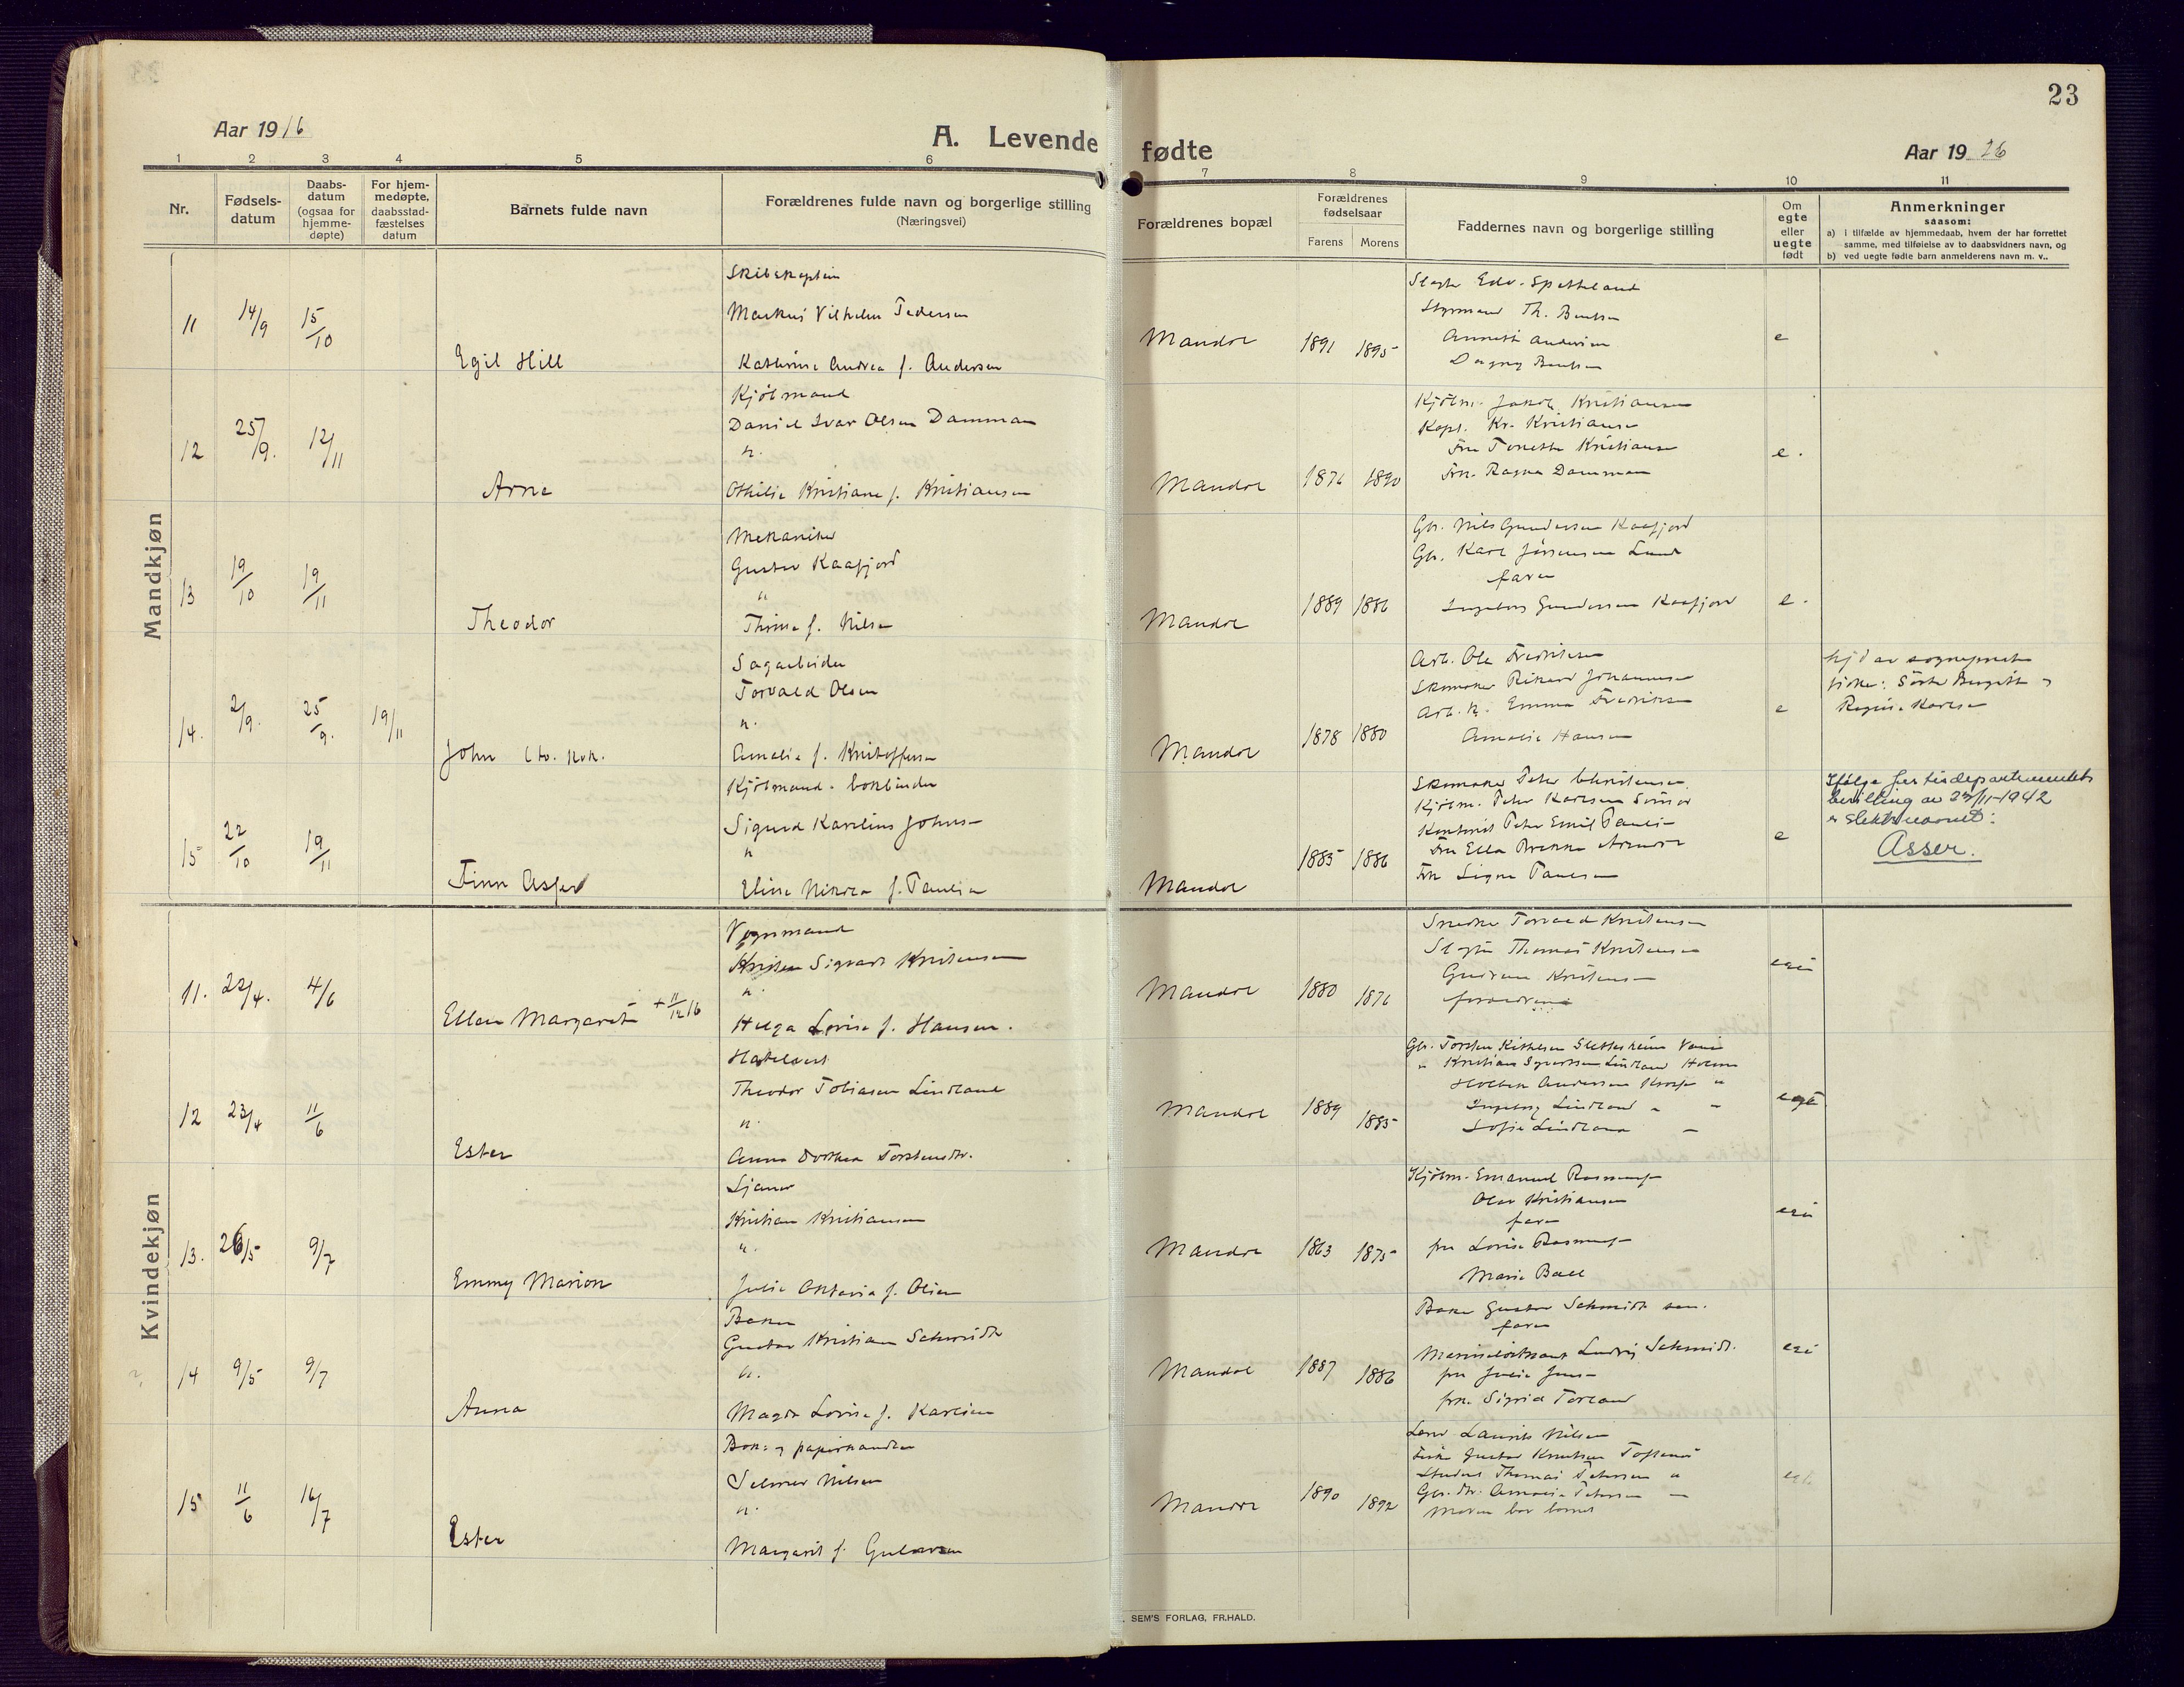 23
Aar 1916
A. Levende fødte
Aar 19 26
1 2 3 4 5 6 7 8 9 10 11
Nr.
Fødsels-
datum
Daabs-
datum
(ogsaa for
hjemme-
døpte)
For hjem-
medøpte,
daabsstad-
fæstelses
datum
Barnets fulde navn
Forældrenes fulde navn og borgerlige stilling
(Næringsvei)
Forældrenes bopæl
Forældrenes
fødselsaar
Farens Morens
Faddernes navn og borgerlige stilling
Om
egte
eller
uegte
født
Anmerkninger
saasom:
a) i tilfælde av hjemmedaab, hvem der har forrettet
samme, med tilføielse av to daabsvidners navn, og
b) ved uegte fødte barn anmelderens navn m. v..
Mandkjøn
11 14/9 15/10
Egil Hill
Skibskaptein
Markus Vilhelm Pedersen
Kathrine Andrea f. Andersen
Mandal 1891 1895
Edv. Spetteland
Styrmand Th. Bentsen
Annette Andersen
Dagny Bentsen
e
12 25/9. 12/11
Arne
Kjøbmand
Daniel Ivar Olsen Damman
h.
Othilie Kristiane f. Kristiansen
Mandal 1876 1890
Kjøbm. Jakob Kristiansen
Kapt. Kr. Kristiansen
Fru Tonette Kristiansen
Frk. Ragna Damman
e.
13 19/10 19/11
Theodor
Mekaniker
Gustav Kaafjord
"
Thrine f. Nilsen
Mandal 1889 1886
Gbr. Nils Gundersen Kaafjord
Gbr. Karl Jørgensen Lund
faren
Ingeborg Gundersen Kaafjord
e.
14. 2/9. 25/9. 19/11
John
Sagarbeider
Torvald Olsen
h.
Amalie f. Kristoffersen
Mandal 1878 1880
Arb. Ole Fredriksen
Skomaker Rikard Johannesen
Arb. h. Emma Fredriksen
Amalie Hansen
e
hjd av sogneprest
Søster Bergitte og
Regine Karlsen
15 22/10 19/11
Finn Asser
Kjøbmand - bokbinder
Sigurd Karelius Johnsen
h
Elise Nikoea f. Paulsen
Mandal 1885 1886
Skomaker Peter Christensen
Kjøbm. Peter Karlsen
Kontorist Peter Emil Paulsen
Fru Ella
Frk Signe Paulsen
e
Ifølge Justisdepartementets
bevilling av 23/11-1942
er slektsnavnet:
Asser.
Kvindekjøn
11. 22/4. 4/6
Ellen Margarete + 11/12 16
Vognmand
Kristen Sigvart Kristensen
h.
Helga Lovise f. Hansen.
Mandal 1880 1876
Snedker Torvald Kristensen
Thomas Kristensen
Gudrun Kristensen
forældrene
egte
12 23/4 11/6
Ester
Hotelvert
Theodor Tobiasen Lindland
h.
Anna Dorthea Torstensdtr.
Mandal 1889 1885
Gbr. Torsten
" Kristian Syvertsen Lindland Holum
Andersen
Ingeborg Lindland " "
Sofie Lindland "
egte
13. 26/5 9/7
Emmy Marion
Sjømand
Kristian Kristiansen
h.
Julie Oktavia f. Olsen
Mandal 1863 1875
Kjøbm. Emanuel Rasmussen
Olav Kristiansen
faren
fru Lovise Rasmussen
Marie Ball
egte
14 9/5 9/7
Anna
Baker
Gustav Kristian Schmidt
h.
Magda Lovise f. Karlsen
Mandal 1887 1886
Baker Gustav Schmidt sen.
faren
Ludvig Schmidt.
fru Julie
frk. Sigrid Torland
egte
15 11/6 16/7
Ester
Bok- og papirhandler
Selmer Nilsen
h.
Margarit f. Gulovsen
Mandal 1890 1892
Laurits Nilsen
Gustav Knutsen
Student Thomas Petersen "
Gbr. dtr. Amalie Petersen "
Moren bar barnet
egte
SEM'S FORLAG, FR.HALD.